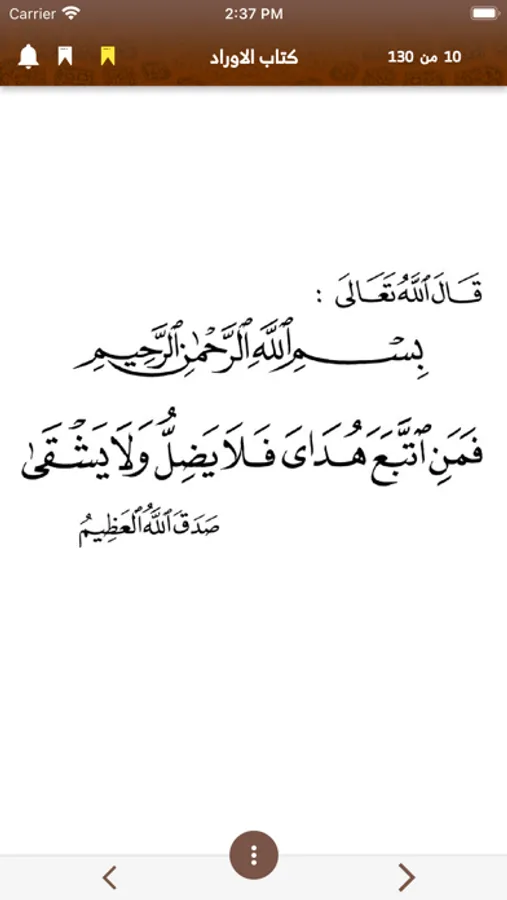 Carrier 2:37 PM
كتاب الاوراد 10 من 130
قَالَ ٱللَّهُ تَعَالَى :
بِسْمِ ٱللَّهِ ٱلرَّحْمَٰنِ ٱلرَّحِيمِ
فَمَنِ ٱتَّبَعَ هُدَايَ فَلَا يَضِلُّ وَلَا يَشْقَىٰ
صَدَقَ ٱللَّهُ ٱلْعَظِيمُ